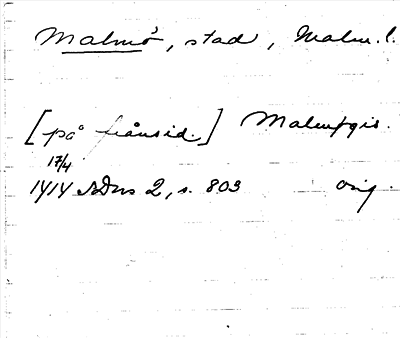 Malmö, stad, Malm. l.
[på frånsid.] Malmøgis.
17/4
1414 SDns 2, s. 803 orig.